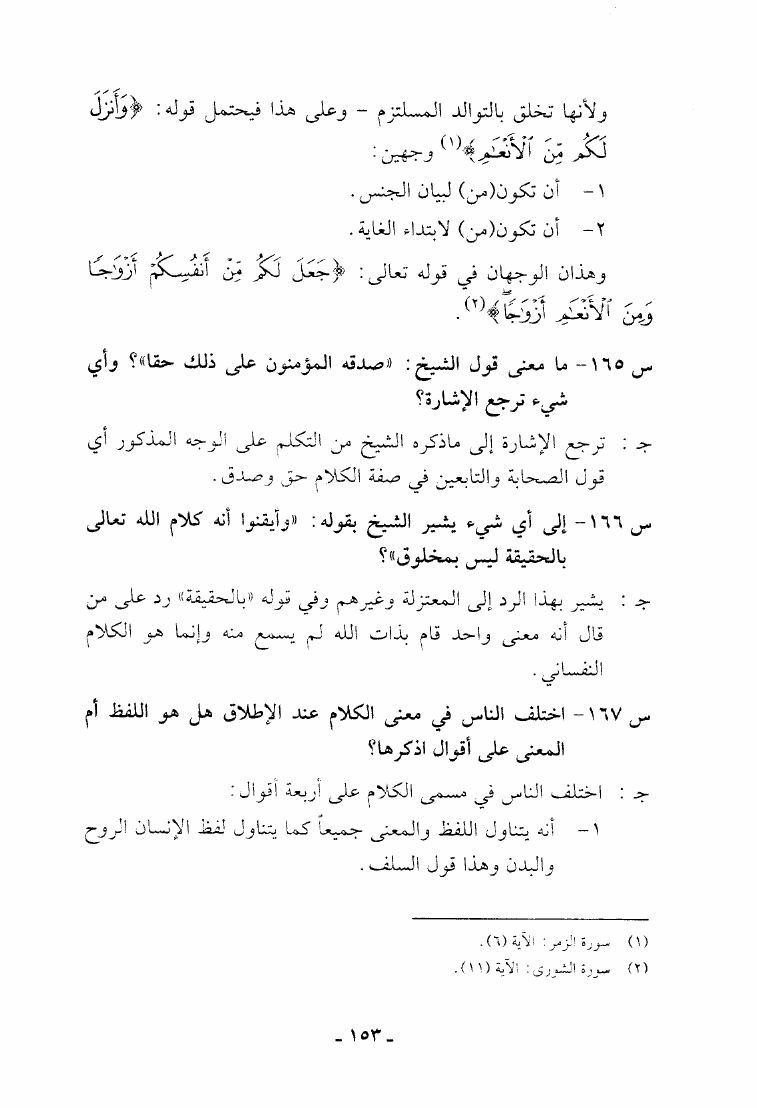 ولأنها تخلق بالتوالد المسلتزم – وعلى هذا فيحتمل قوله: ﴿وَأَنزَلَ
لَكُم مِّنَ ٱلْأَنْعَٰمِ﴾(١) وجهين:
١– أن تكون(من) لبيان الجنس.
٢– أن تكون(من) لابتداء الغاية.
وهذان الوجهان في قوله تعالى: ﴿جَعَلَ لَكُم مِّنْ أَنفُسِكُمْ أَزْوَٰجًا
وَمِنَ ٱلْأَنْعَٰمِ أَزْوَٰجًا﴾(٢).
س ١٦٥– ما معنى قول الشيخ: «صدقه المؤمنون على ذلك حقا»؟ وأي
شيء ترجع الإشارة؟
جـ : ترجع الإشارة إلى ماذكره الشيخ من التكلم على الوجه المذكور أي
قول الصحابة والتابعين في صفة الكلام حق وصدق.
س ١٦٦– إلى أي شيء يشير الشيخ بقوله: «وأيقنوا أنه كلام الله تعالى
بالحقيقة ليس بمخلوق»؟
جـ : يشير بهذا الرد إلى المعتزلة وغيرهم وفي قوله «بالحقيقة» رد على من
قال أنه معنى واحد قام بذات الله لم يسمع منه وإنما هو الكلام
النفساني.
س ١٦٧– اختلف الناس في معنى الكلام عند الإطلاق هل هو اللفظ أم
المعنى على أقوال اذكرها؟
جـ : اختلف الناس في مسمى الكلام على أربعة أقوال:
١– أنه يتناول اللفظ والمعنى جميعاً كما يتناول لفظ الإنسان الروح
والبدن وهذا قول السلف.
(١) سورة الزمر: الآية (٦).
(٢) سورة الشورى: الآية (١١).
ـ ١٥٣ ـ